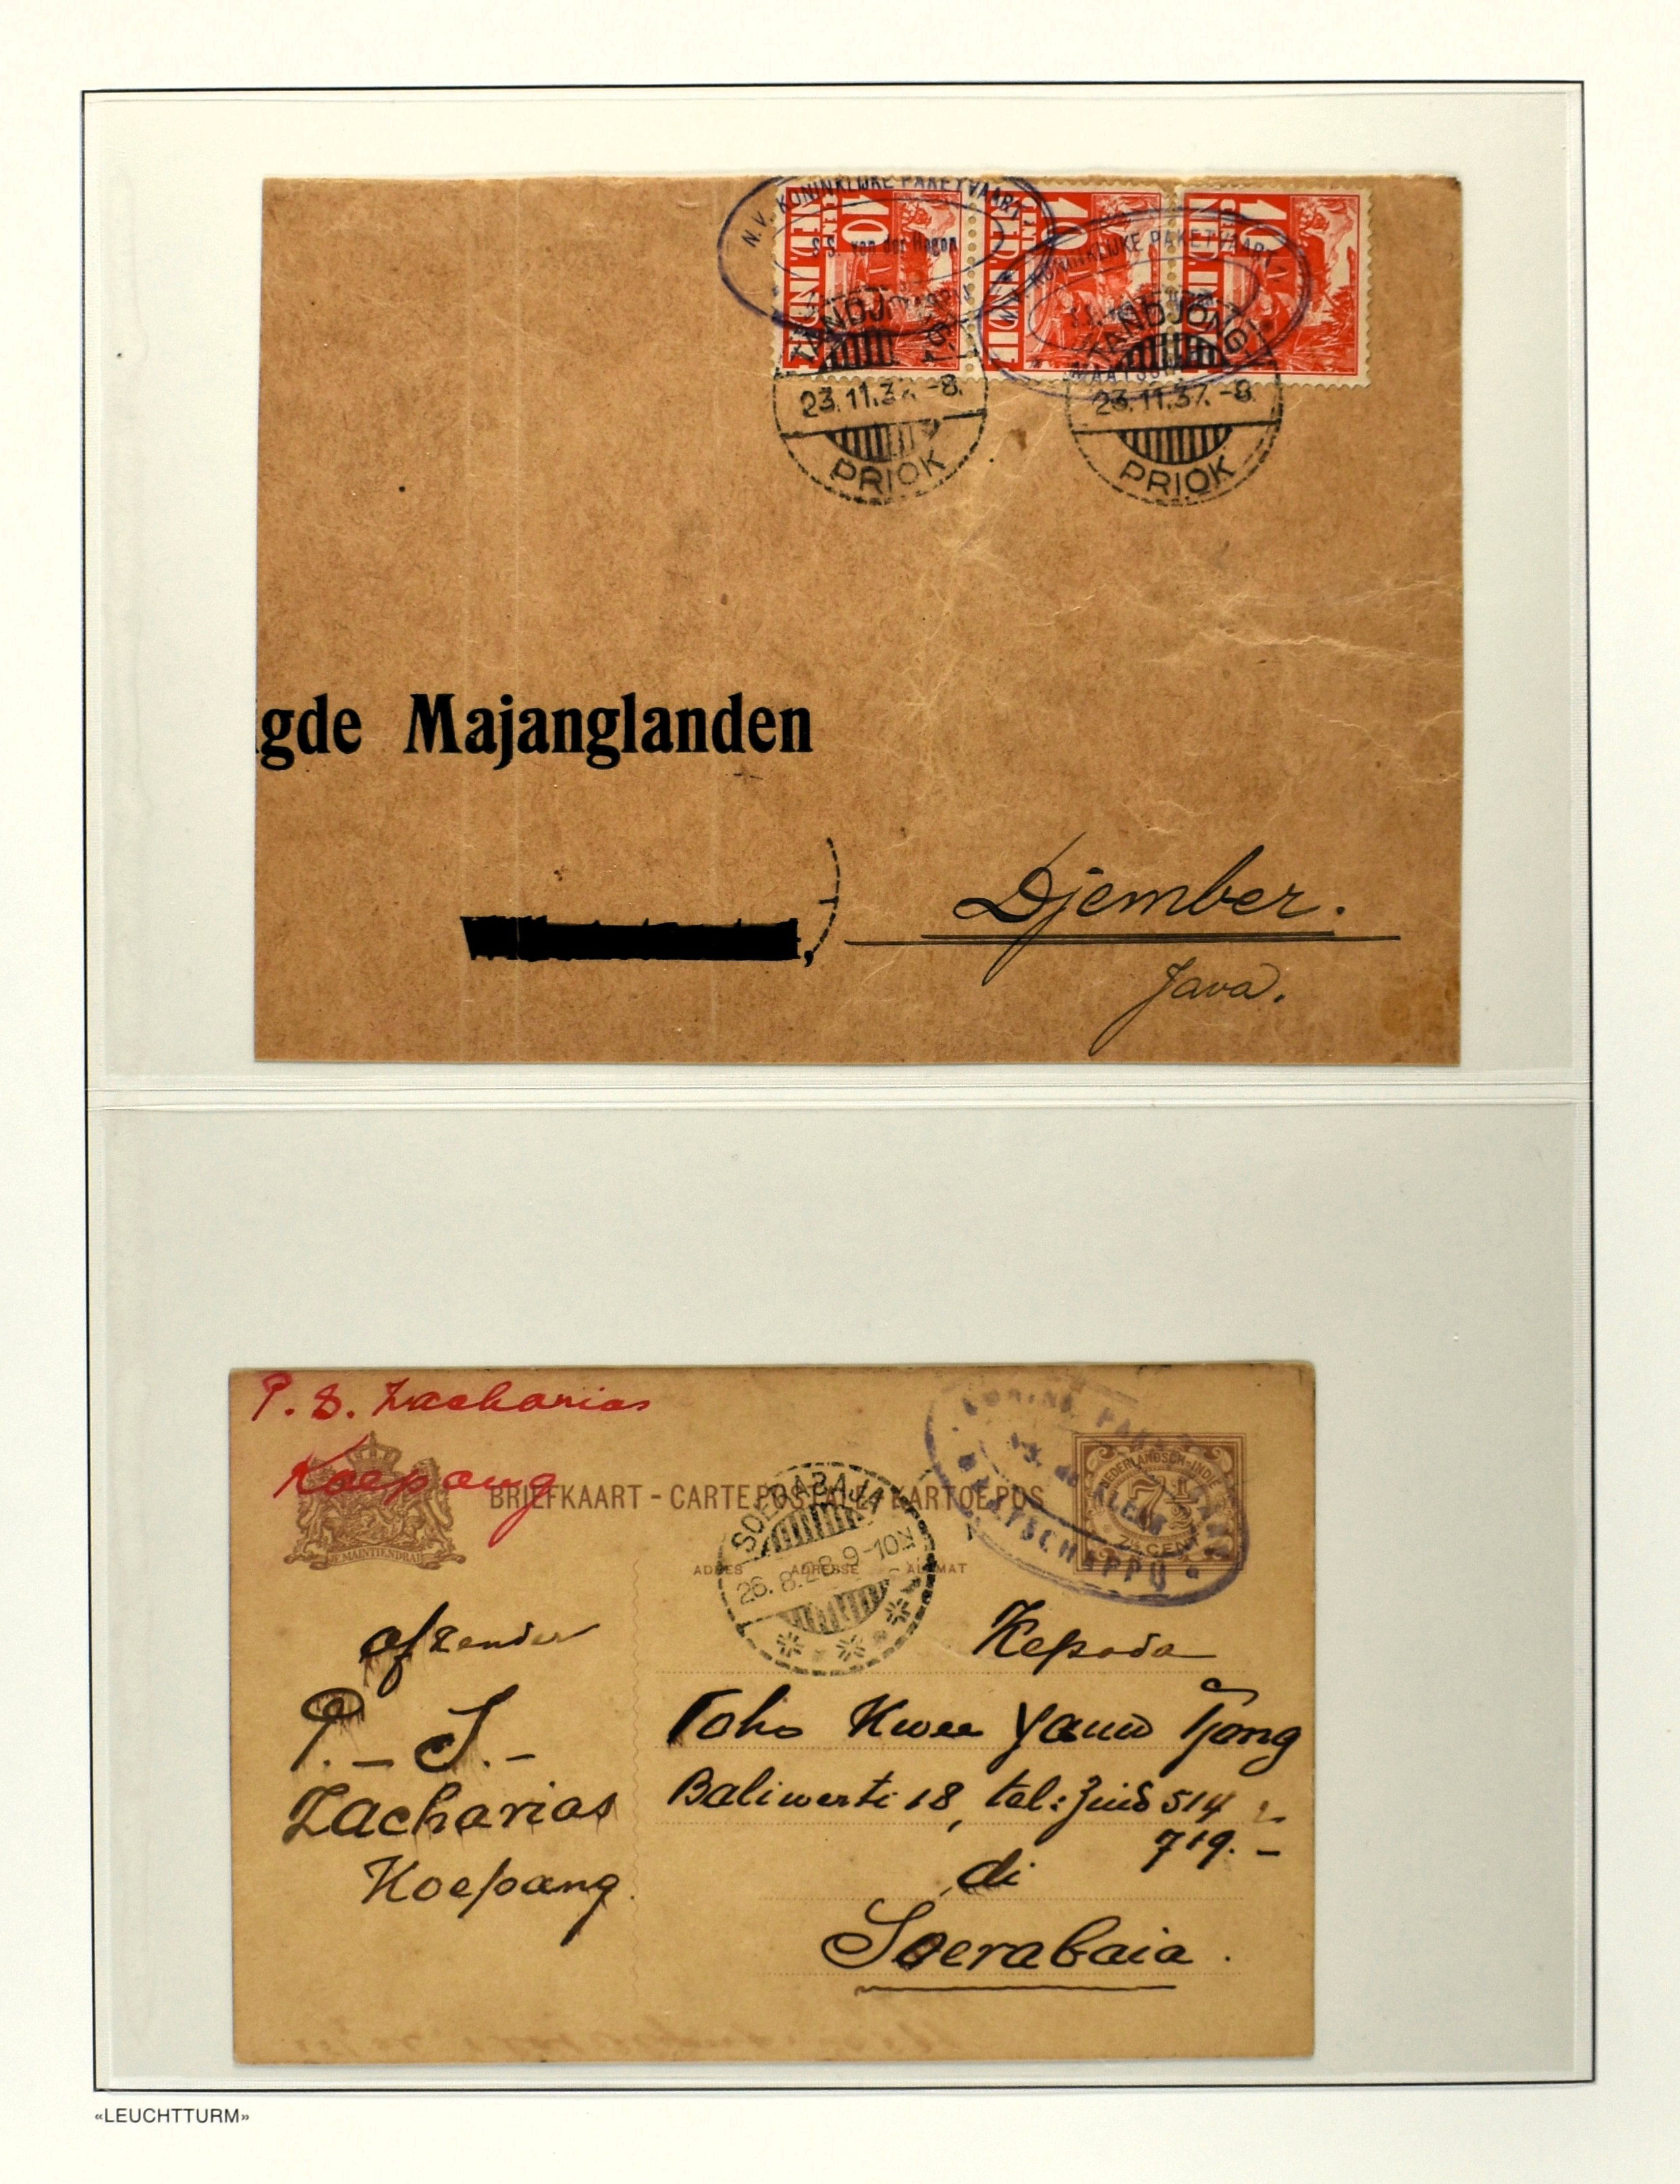 N.V. KONINKLIJKE PAKETVAART
S.S. van der Hagen
10 CENT
NED. INDIE
10 CENT
NED. INDIE
10 CENT
NED. INDIE
KONINKLIJKE PAKETVAART
TANDJONG
23.11.37.-8.
PRIOK
TANDJONG
23.11.37.-8.
PRIOK
gde Majanglanden
Djember.
Java.
P. S. Zacharias
Koepang
JE MAINTIENDRAI
BRIEFKAART - CARTE POSTALE - KARTOE POS
ADRES ADRESSE ALAMAT
SOERABAJA
26.8.28.9-10
KONINKL. PAKETVAART
S.S. de KLERK
MAATSCHAPPIJ
NEDERLANDSCH-INDIE
7½
7½ CENT
afzender
P. - S. -
Zacharias
Koepang.
Kepada
Toko Kwee Yauw Tjong
Baliwerti 18, tel: Zuid 514
719. -
di
Soerabaia.
«LEUCHTTURM»